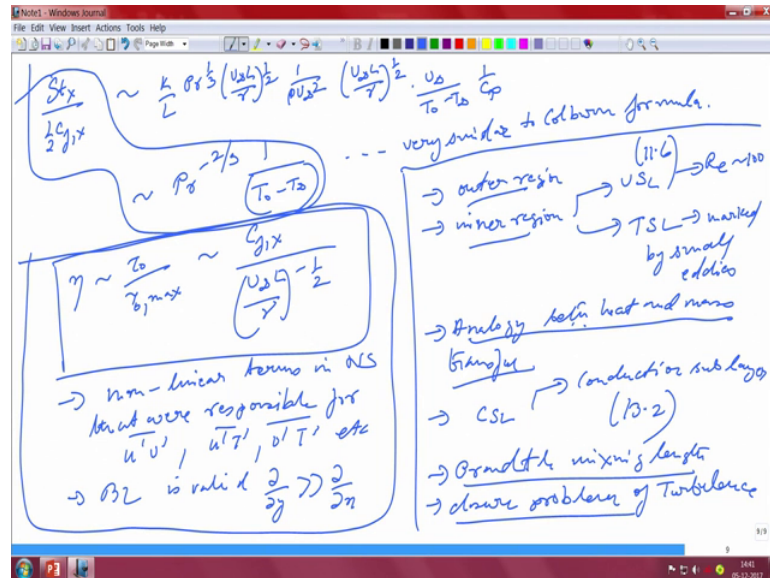 Note1 - Windows Journal
File Edit View Insert Actions Tools Help
Page Width
St_x / (1/2 C_f,x) ~ K/L Pr^1/3 (U∞L/ν)^1/2 1/(ρU∞²) (U∞L/ν)^1/2 · U∞/(T0 - T∞) 1/Cp
~ Pr^-2/3 1/(T0 - T∞) ... very similar to Colburn formula.
η ~ τ0/τ0,max ~ C_f,x / (U∞L/ν)^-1/2
→ non-linear terms in NS
that were responsible for
u'v', u'T', v'T' etc
→ BL is valid ∂/∂y >> ∂/∂x
→ outer region
(11.6)
→ inner region → VSL → Re ~100
→ TSL → marked
by small
eddies
→ Analogy beth heat and mass
transfer
→ CSL → Conduction sublayer
(13.2)
→ Prandtl mixing length
→ closure problem of Turbulence
9/9
9
14:41
05-12-2017